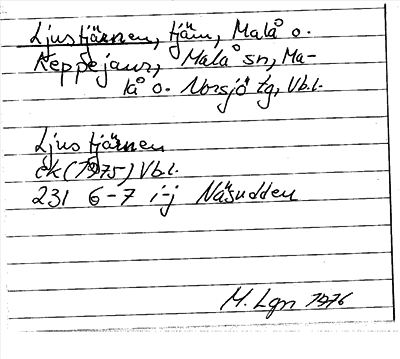 Ljustjärnen, tjärn, Malå o.
Reppejaur, Malå sn, Ma-
lå o. Norsjö tg, Vb.l.
Ljustjärnen
ek (1975) Vb.l.
231 6-7 i-j Näsudden
M. Lgn 1976